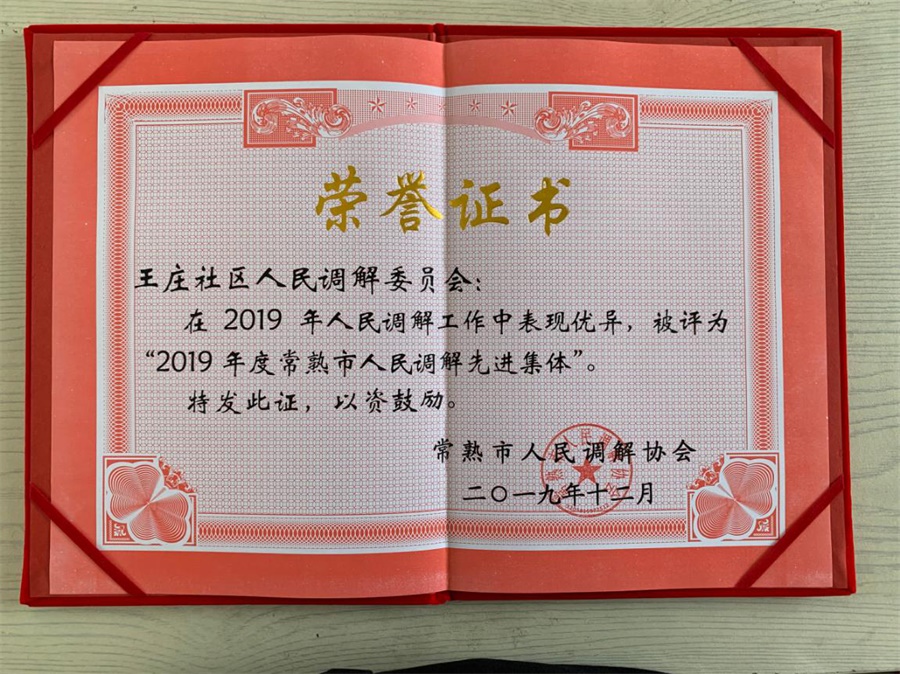 荣誉证书
王庄社区人民调解委员会:
在 2019 年人民调解工作中表现优异，被评为
“2019 年度常熟市人民调解先进集体”。
特发此证，以资鼓励。
常熟市人民调解协会
二〇一九年十二月